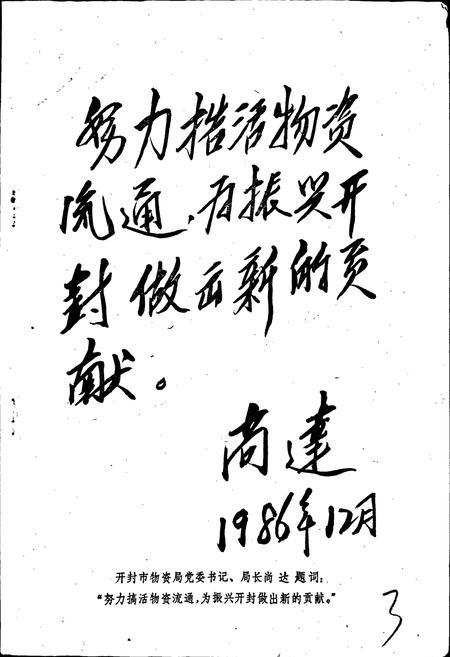 努力搞活物资
流通，为振兴开
封做出新的贡
献。
尚达
1986年12月
开封市物资局党委书记、局长尚 达 题词：
“努力搞活物资流通，为振兴开封做出新的贡献。”
3